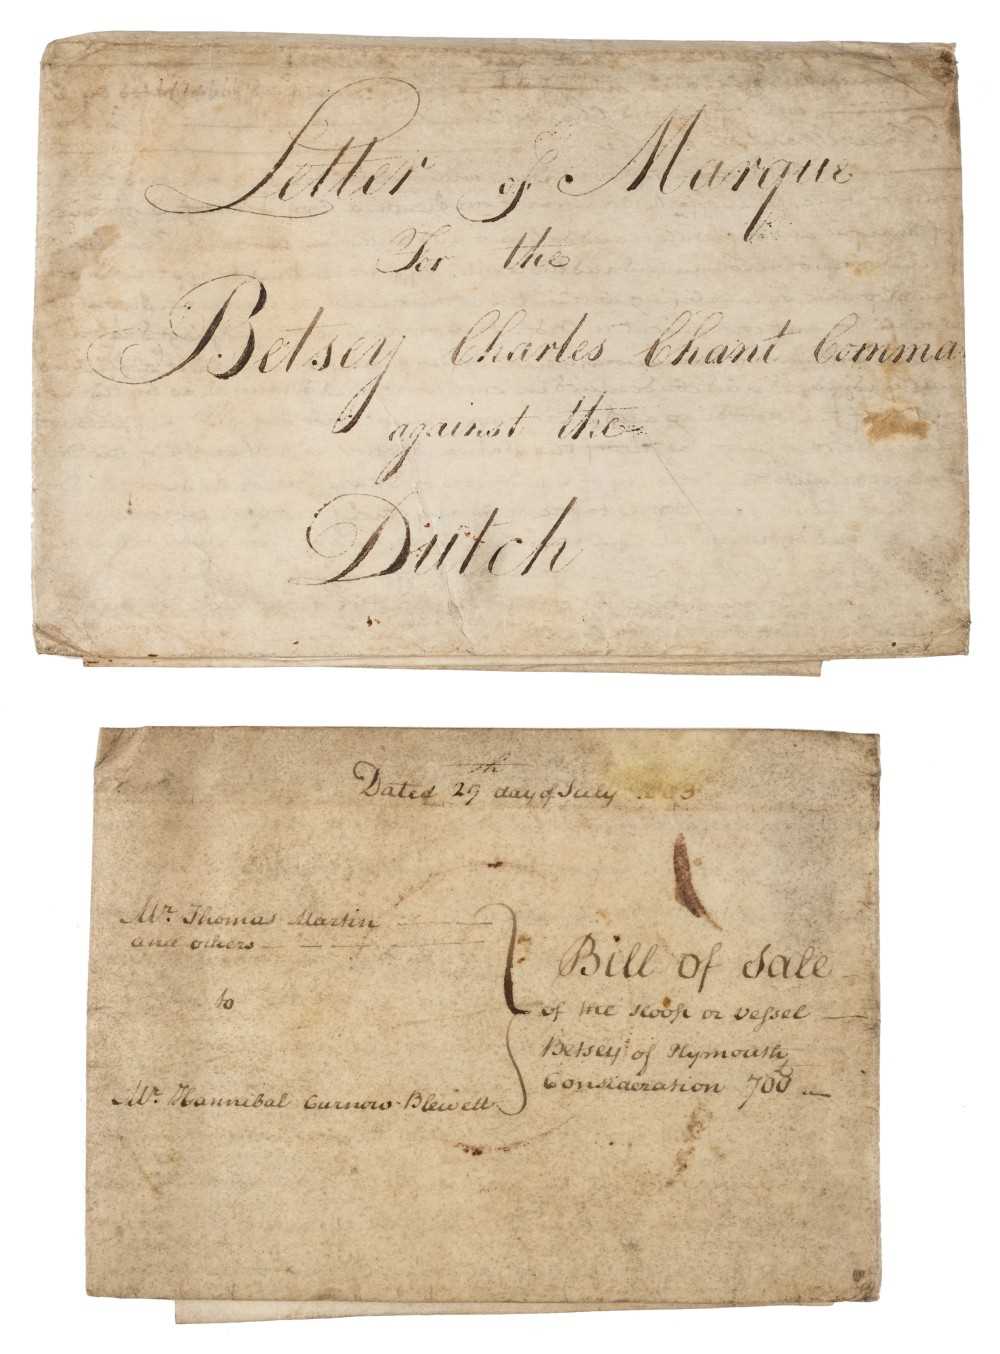 Letter of Marque
For the
Betsey Charles Chant Comma
against the
Dutch
Dated 29th day of July
Mr. Thomas Martin
and others
to
Mr. Hannibal Curnow Blewett
Bill of Sale
of the sloop or vessel
Betsey of Plymouth
Consideration 700